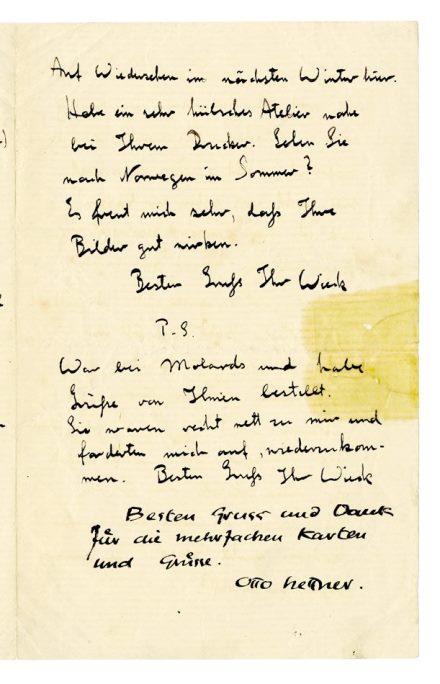 Auf Wiedersehen im nächsten Winter hier.
Habe ein sehr hübsches Atelier nahe
bei Ihrem Drucker. Gehen Sie
nach Norwegen im Sommer?
Es freut mich sehr, dass Ihre
Bilder gut wirken.
Besten Gruß Ihr Wieck
P.S.
War bei Molards und habe
Grüße von Ihnen bestellt.
Sie waren recht nett zu mir und
forderten mich auf, wiederzukom-
men. Besten Gruß Ihr Wieck
Besten Gruss und Dank
für die mehrfachen Karten
und Grüsse.
Otto Hettner.